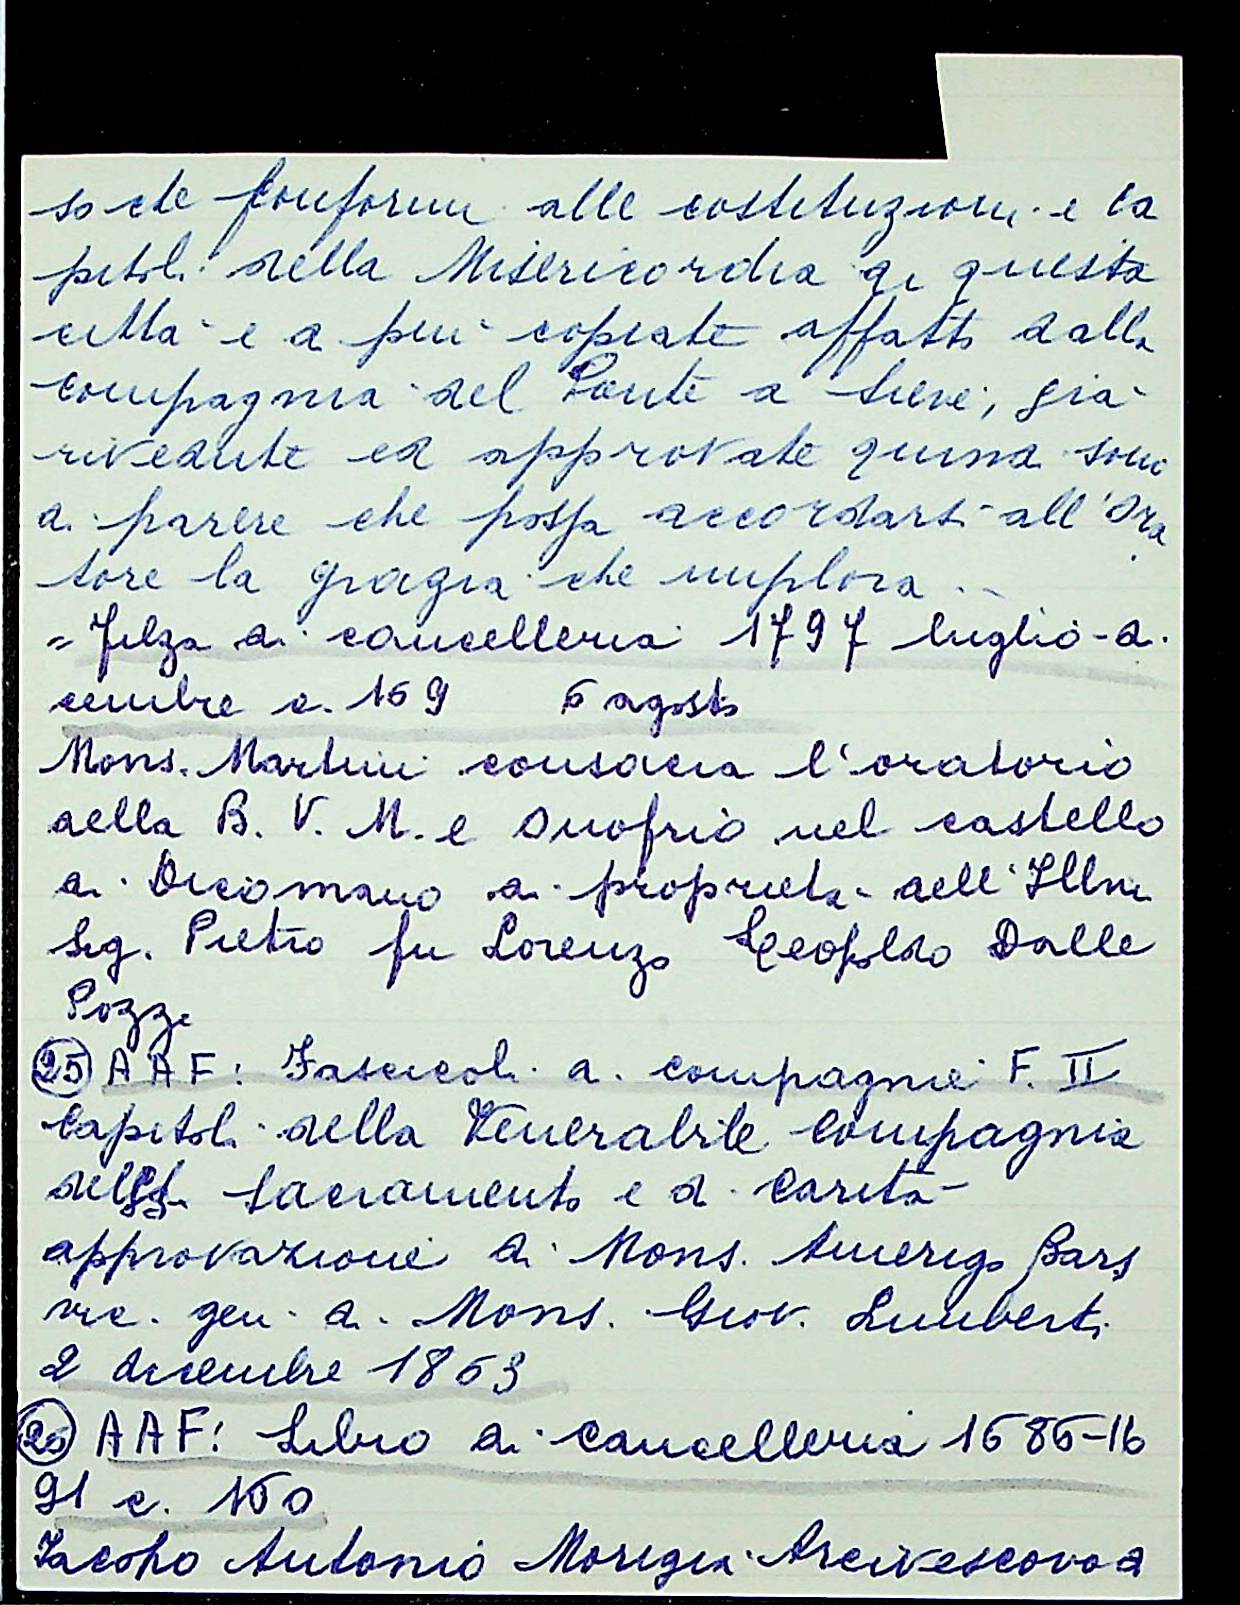 so che conformi alle costituzioni e ca
pitoli della Misericordia di questa
città e a più copiate affatto dalla
compagnia del Ponte a Sieve, già
rivedute ed approvate quindi sono
di parere che possa accordarsi all'Ora
tore la grazia che implora ..
= Filza di cancelleria 1797 luglio-di
cembre c. 169 6 agosto
Mons. Martini consacra l'oratorio
della B. V. M. e Onofrio nel castello
di Dicomano di proprietà dell'Illmi
Sig. Pietro fu Lorenzo Leopoldo Dalle
Pozze
25 AAF: Fascicoli di compagnie F. II
Capitoli della Venerabile Compagnia
del SS. Sacramento e di Carità
approvazione di Mons. Amerigo Barsi
vic. gen. di Mons. Giov. Limberti
2 dicembre 1863
26 AAF: Libro di cancelleria 1686-16
91 c. 160
Jacopo Antonio Morigia Arcivescovo d